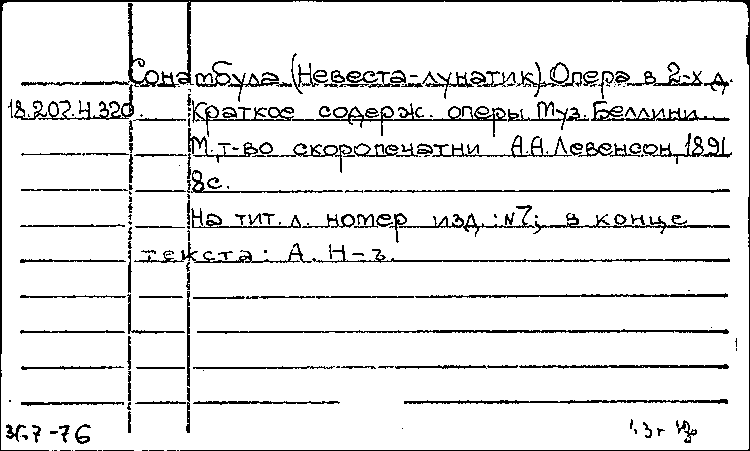 Сонамбула (Невеста-лунатик). Опера в 2-х д.
18.207.4.320. Краткое содерж. оперы. Муз. Беллини.
М., т-во скоропечатни А.А. Левенсон, 1891
8с.
На тит. л. номер изд.: №7; в конце
текста: А. Н-ъ.
-76